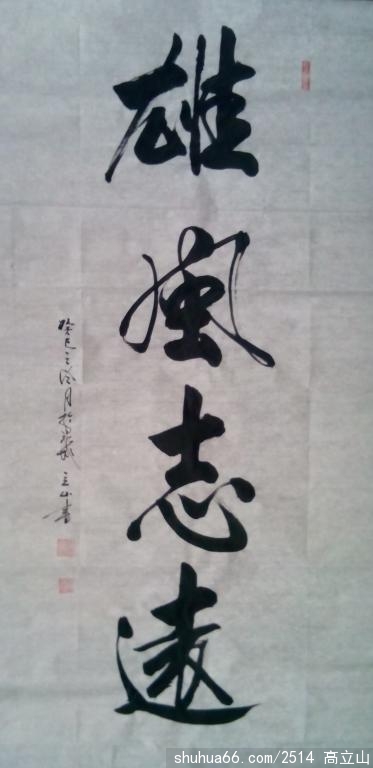 雄風志遠
癸巳之
月於泉城 立山書
shuhua66.com/2514 高立山